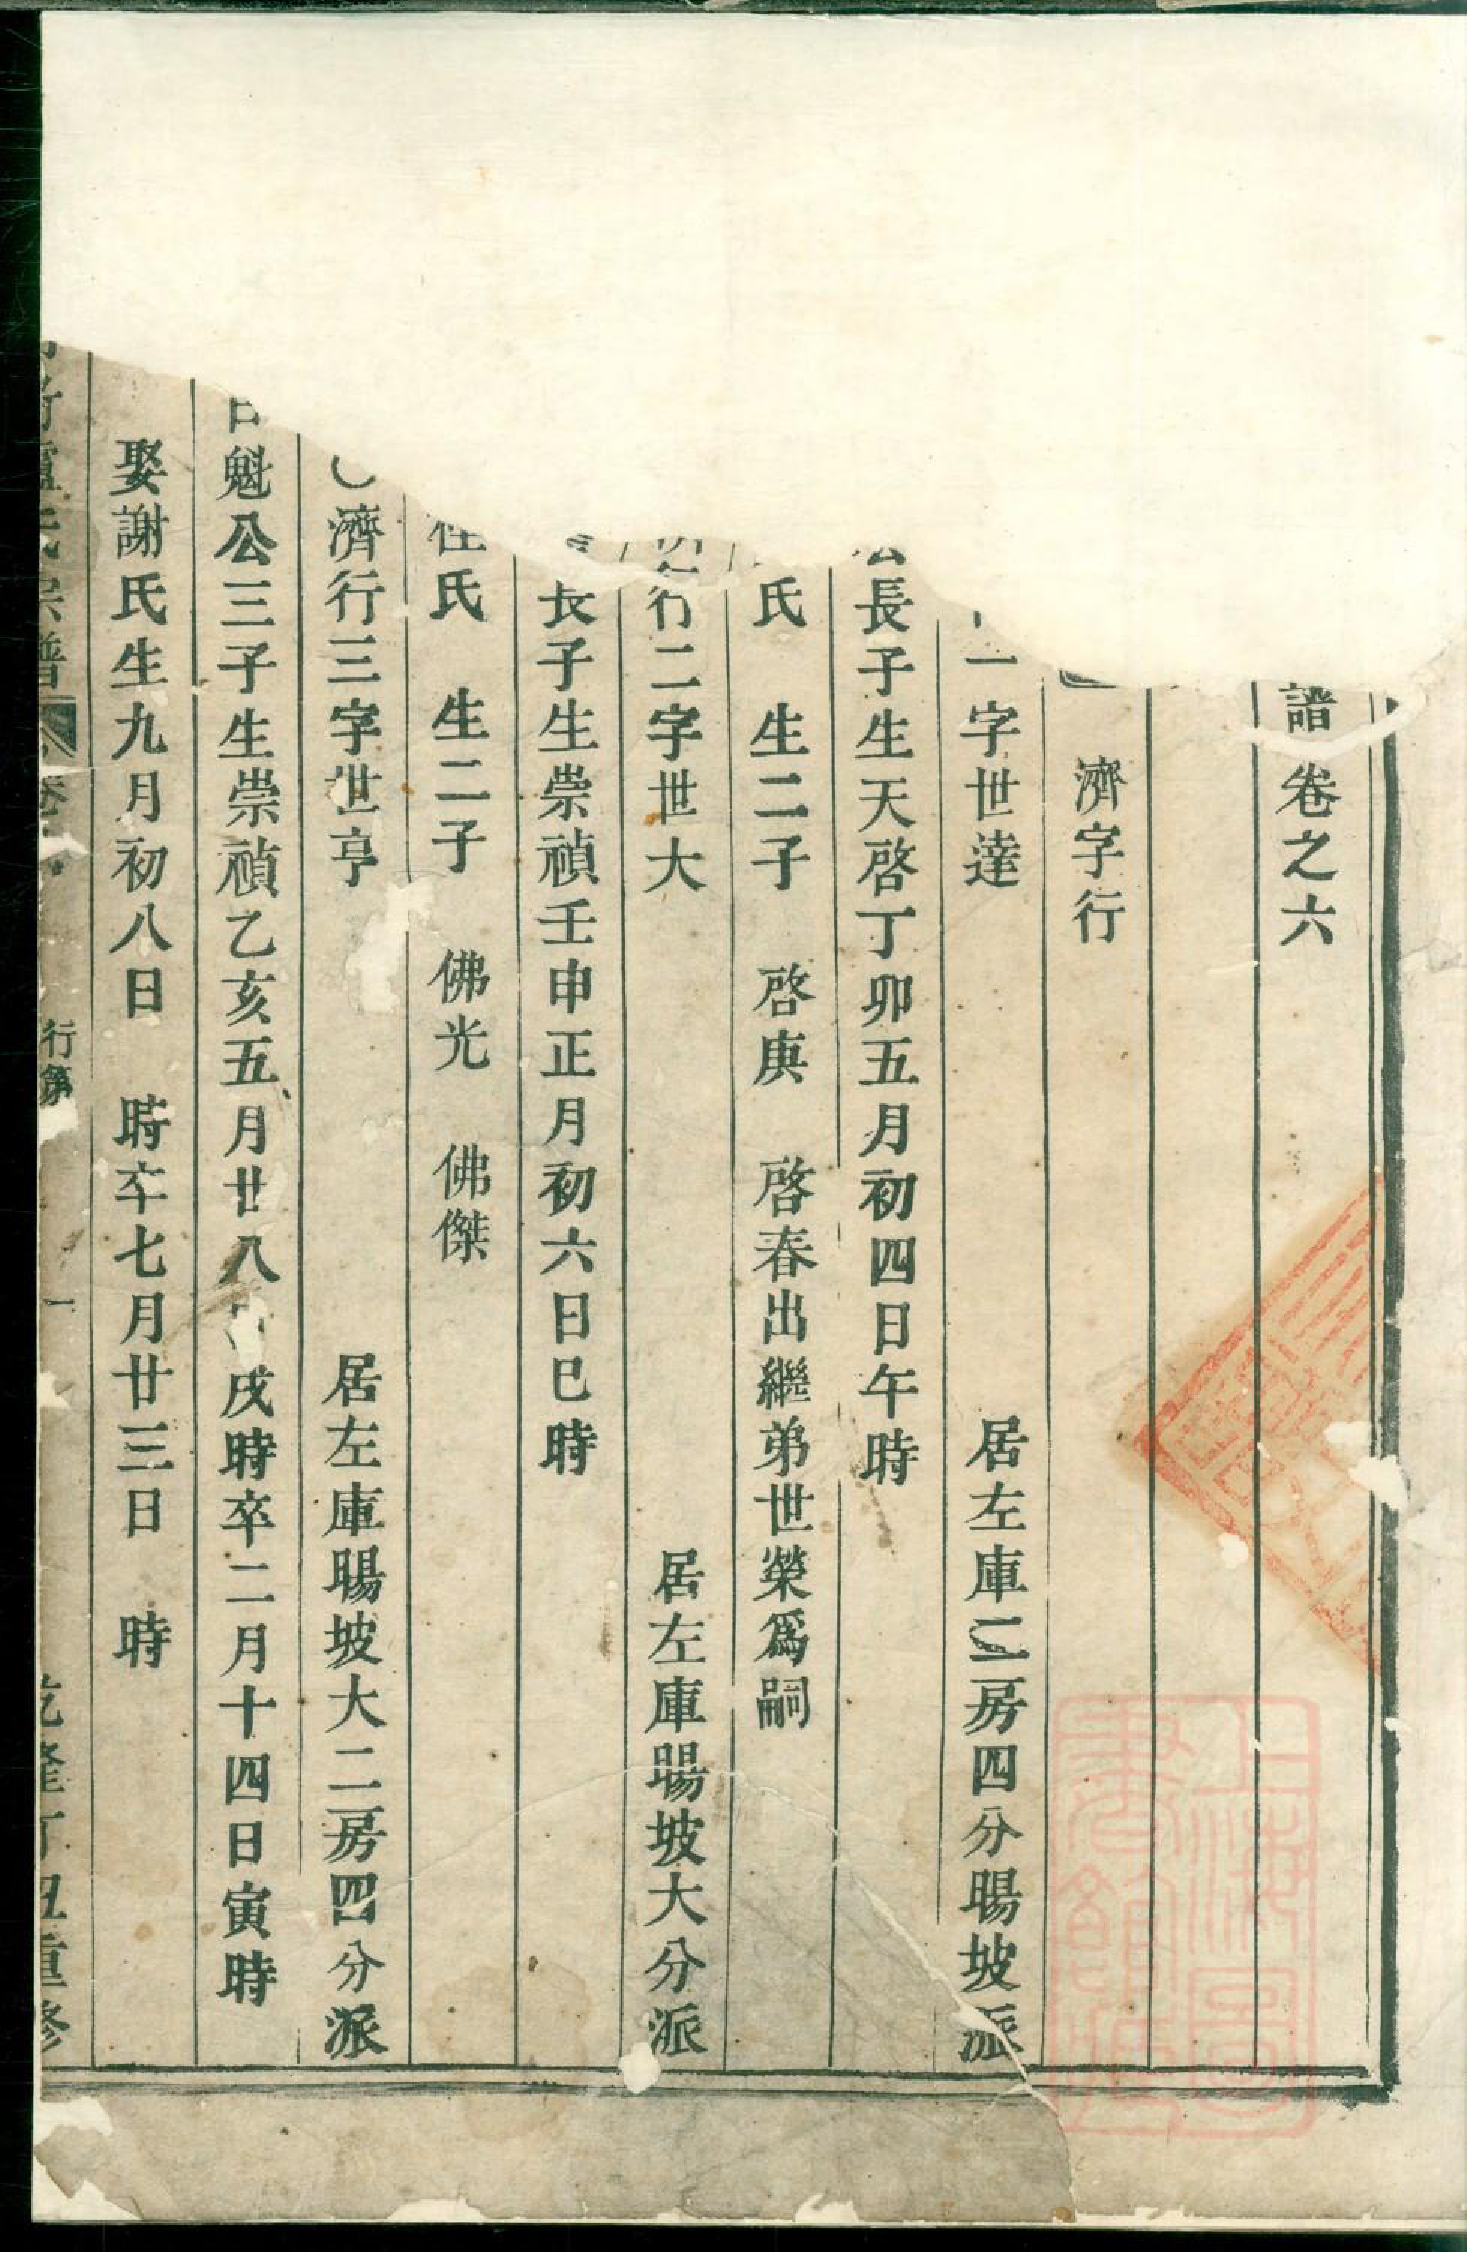 譜卷之六
濟字行
一字世達 居左庫二房四分暘坡派
公長子生天啓丁卯五月初四日午時
氏 生二子 啓庚 啓春出繼弟世榮爲嗣
行二字世大 居左庫暘坡大分派
長子生崇禎壬申正月初六日巳時
氏 生二子 佛光 佛傑
濟行三字世亨 居左庫暘坡大二房四分派
魁公三子生崇禎乙亥五月廿八 戌時卒二月十四日寅時
娶謝氏生九月初八日 時卒七月廿三日 時
盧氏宗譜 卷 行第 一 乾隆丁丑重修
上海圖書館藏